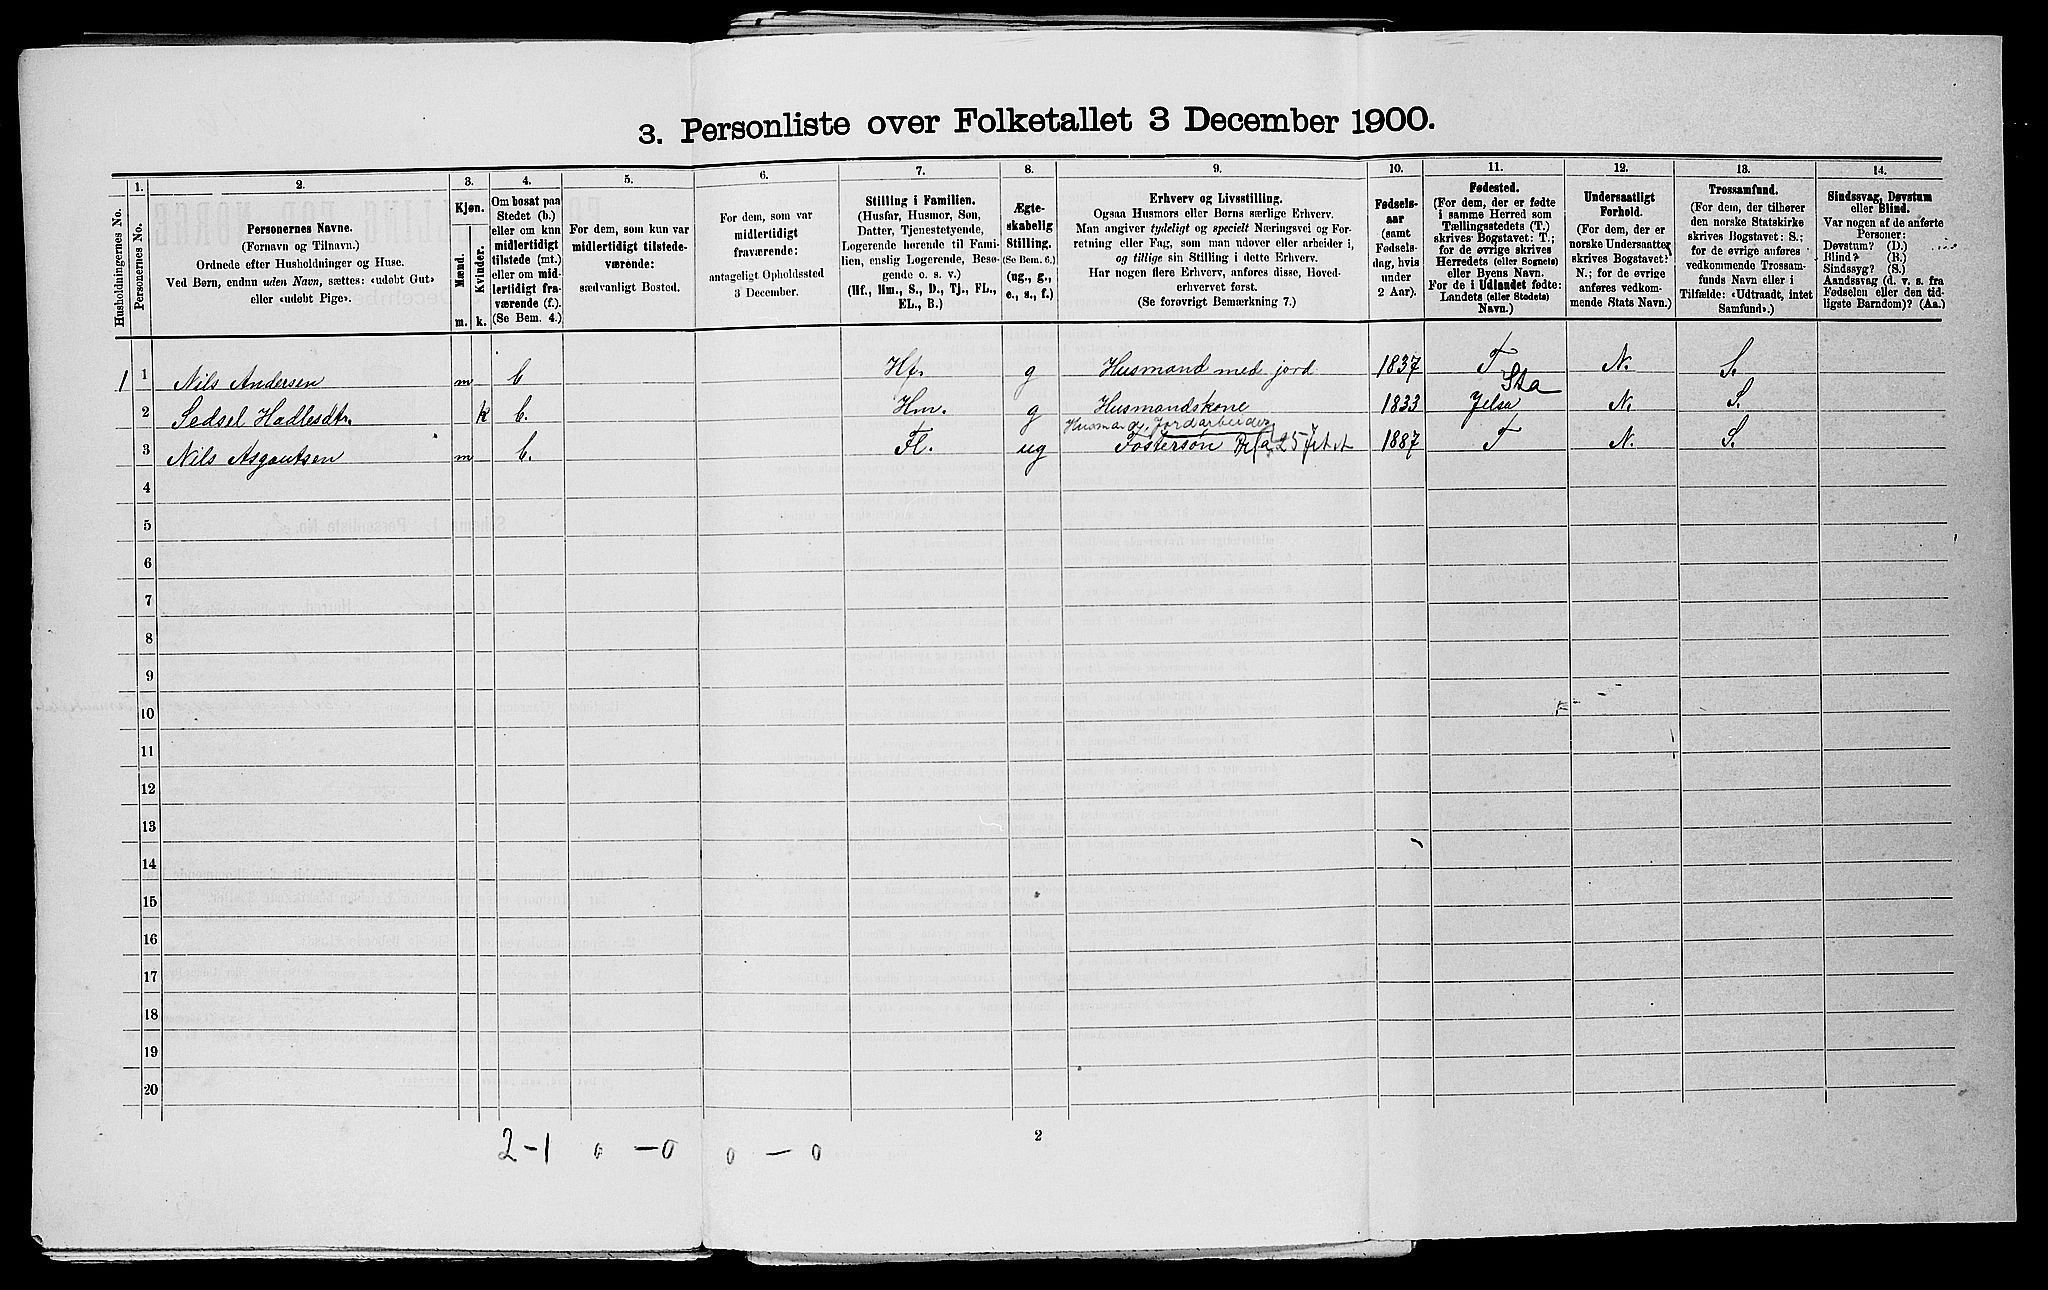 3. Personliste over Folketallet 3 December 1900.
Husholdningernes No.
1.
Personernes No.
2.
Personernes Navne.
(Fornavn og Tilnavn.)
Ordnede efter Husholdninger og Huse.
Ved Børn, endnu uden Navn, sættes: «udøbt Gut»
eller «udøbt Pige».
3.
Kjøn.
Mænd.
Kvinder.
m. k.
4.
Om bosat paa
Stedet (b.)
eller om kun
midlertidigt
tilstede (mt.)
eller om mid-
lertidigt fra-
værende (f.).
(Se Bem. 4.)
5.
For dem, som kun var
midlertidigt tilstede-
værende:
sædvanligt Bosted.
6.
For dem, som var
midlertidigt
fraværende:
antageligt Opholdssted
3 December.
7.
Stilling i Familien.
(Husfar, Husmor, Søn,
Datter, Tjenestetyende,
Logerende hørende til Fami-
lien, enslig Logerende, Besø-
gende o. s. v.)
(Hf., Hm., S., D., Tj., FL.,
EL., B.)
8.
Ægte-
skabelig
Stilling.
(Se Bem. 6.)
(ug., g.,
e., s., f.)
9.
Erhverv og Livsstilling.
Ogsaa Husmors eller Børns særlige Erhverv.
Man angiver tydeligt og specielt Næringsvei og For-
retning eller Fag, som man udøver eller arbeider i,
og tillige sin Stilling i dette Erhverv.
Har nogen flere Erhverv, anføres disse, Hoved-
erhvervet først.
(Se forøvrigt Bemærkning 7.)
10.
Fødsels-
aar
(samt
Fødsels-
dag, hvis
under
2 Aar).
11.
Fødested.
(For dem, der er fødte
i samme Herred som
Tællingsstedets (T.)
skrives Bogstavet: T.;
for de øvrige skrives
Herredets (eller Sognets)
eller Byens Navn.
For de i Udlandet fødte:
Landets (eller Stedets)
Navn.)
12.
Undersaatligt
Forhold.
(For dem, der er
norske Undersaatter,
skrives Bogstavet:
N.; for de øvrige
anføres vedkom-
mende Stats Navn.)
13.
Trossamfund.
(For dem, der tilhører
den norske Statskirke
skrives Bogstavet: S.;
for de øvrige anføres
vedkommende Trossam-
funds Navn eller i
Tilfælde: «Udtraadt, intet
Samfund».)
14.
Sindssvag, Døvstum
eller Blind.
Var nogen af de anførte
Personer:
Døvstum? (D.)
Blind? (B.)
Sindssyg? (S.)
Aandssvag (d. v. s. fra
Fødselen eller den tid-
ligste Barndom)? (Aa.)
1 1 Nils Andersen m b Hf. g Husmand med jord 1837 T N. S.
Sta
2 Sedsel Hadlesdtr. k b. Hm. g Husmandskone 1833 Jelsa N. S.
Husmands, Jordarbeider
3 Nils Asgautsen m b. Fl. ug Fosterson 1887 T N. S.
4
5
6
7
8
9
10
11
12
13
14
15
16
17
18
19
20
2-1 0 -0 0 - 0
2